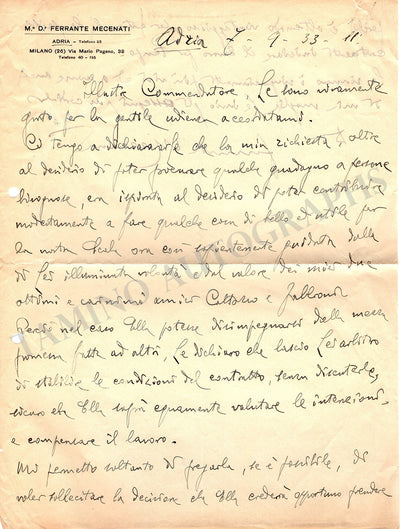 M.º D.º FERRANTE MECENATI
ADRIA - Telefono 56
MILANO (26) Via Mario Pagano, 38
Telefono 40 - 195
Adria 7 - 9 - 33 - 11
Illustre Commendatore, Le sono vivamente
grato per la gentile udienza accordatami.
Ci tengo a dichiararLe che la mia richiesta, oltre
al desiderio di poter procurare qualche guadagno a persone
bisognose, era ispirata al desiderio di poter contribuire
modestamente a fare qualche cosa di bello e d'utile per
la nostra Scala ora così sapientemente guidata dalla
di Lei illuminata volontà e dal valore dei miei due
ottimi e carissimi amici e Fabbroni
Perciò nel caso Ella potesse disimpegnarsi dalla mezza
promessa fatta ad altri, Le dichiaro che lascio Lei arbitro
di stabilire le condizioni del contratto, senza discuterle,
sicuro che Ella saprà equamente valutare le intenzioni
e compensare il lavoro.
Mi permetto soltanto di pregarla, se è possibile, di
voler sollecitare la decisione che Ella crederà opportuno prendere
TAMINO AUTOGRAPHS